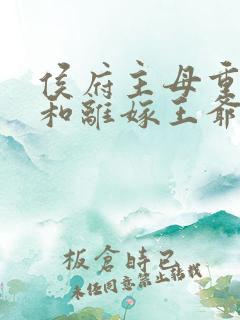 侯府主母重
和離嫁王爺
板倉時已
未经同意禁止转载